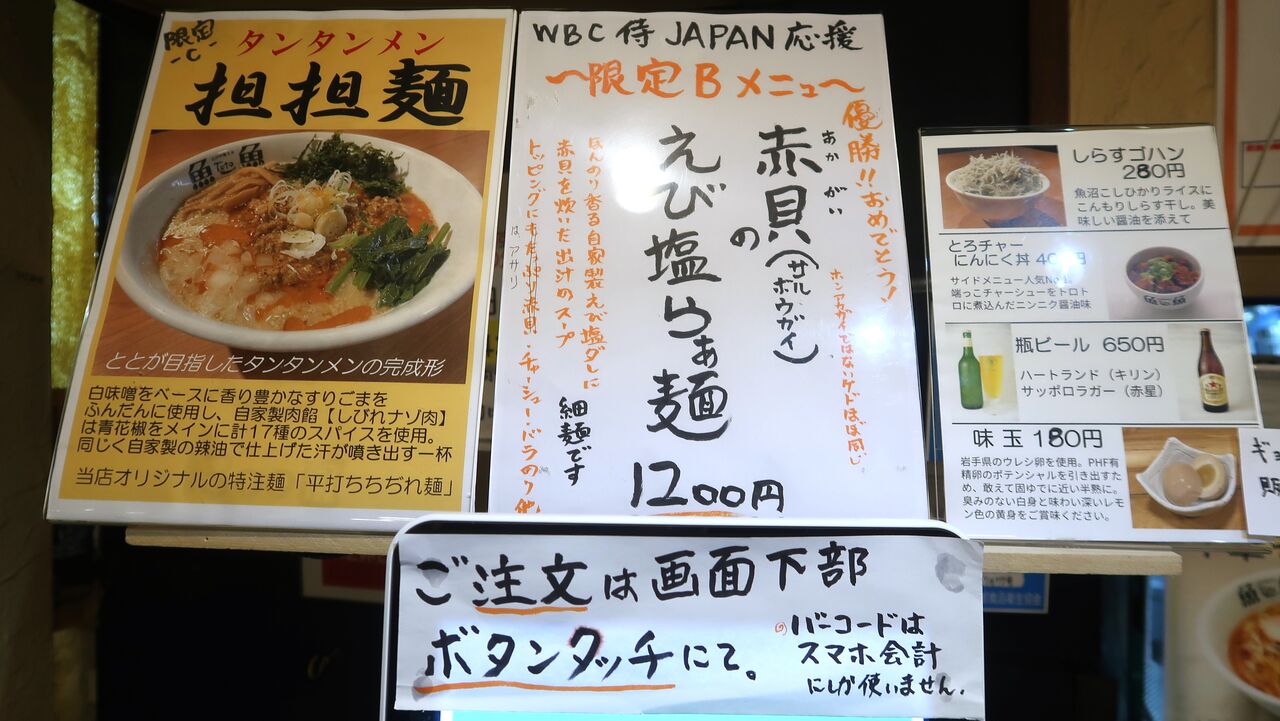 限定
-C-
タンタンメン
担担麺
魚とと魚
ととが目指したタンタンメンの完成形
白味噌をベースに香り豊かなすりごまを
ふんだんに使用し、自家製肉餡【しびれナゾ肉】
は青花椒をメインに計17種のスパイスを使用。
同じく自家製の辣油で仕上げた汗が噴き出す一杯
当店オリジナルの特注麺「平打ちちぢれ麺」
WBC 侍 JAPAN 応援
〜限定Bメニュー〜
優勝!!おめでとう!
赤貝(サルボウガイ)の
あかがい
えび塩らぁ麺
ホンアカガイではないケドほぼ同じ
ほんのり香る自家製えび塩ダレに
赤貝を炊いた出汁のスープ
トッピングにもたっぷり赤貝・チャーシュー・バラのり他
はアサリ
細麺です
1200円
しらすゴハン
280円
魚沼こしひかりライスに
こんもりしらす干し。美
味しい醤油を添えて
とろチャー
にんにく丼 400円
サイドメニュー人気No.1
端っこチャーシューをトロト
ロに煮込んだニンニク醤油味
瓶ビール 650円
ハートランド（キリン）
サッポロラガー（赤星）
味玉 180円
岩手県のウレシ卵を使用。PHF有
精卵のポテンシャルを引き出すた
め、敢えて固ゆでに近い半熟に。
臭みのない白身と味わい深いレモ
ン色の黄身をご賞味ください。
ご注文は画面下部
ボタンタッチにて。
バーコードは
スマホ会計
にしか使いません。